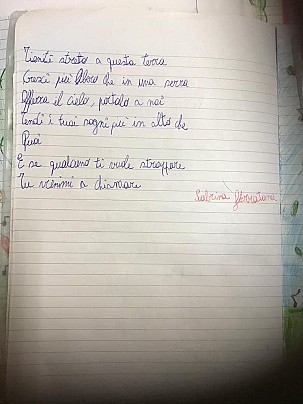 Tieniti stretto a questa terra
Cresci più libero che in una serra
Afferra il cielo, portalo a noi
tendi i tuoi sogni più in alto che
Puoi
E se qualcuno ti vuole strappare
Tu vienimi a chiamare
Sabrina